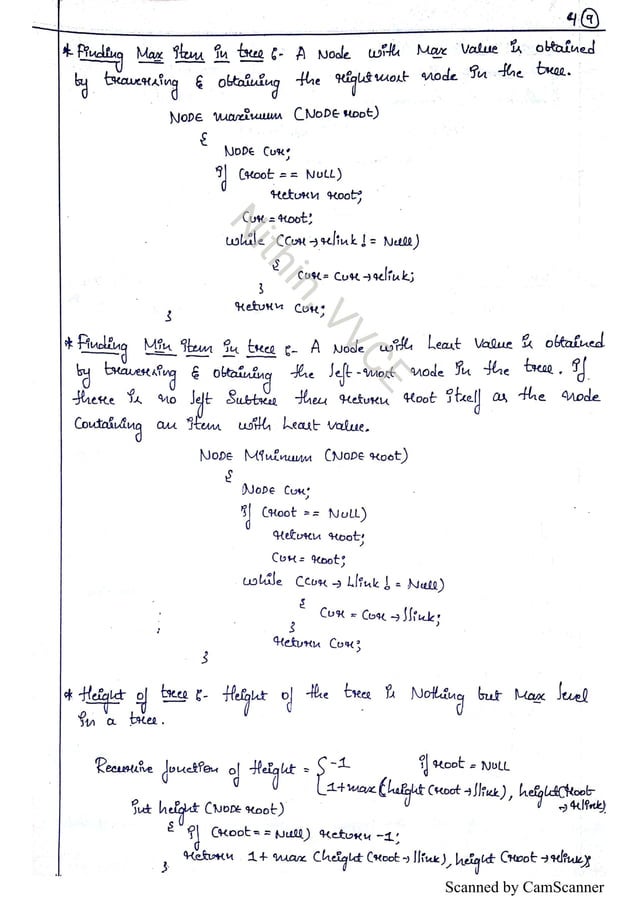 4 9
* Finding Max Item in tree :- A Node with Max Value is obtained
by traversing & obtaining the rightmost node in the tree.
NODE maximum (NODE root)
{
NODE cur;
if (root == NULL)
return root;
Cur = root;
while (cur → rlink != Null)
{
cur = cur → rlink;
}
return cur;
}
* Finding Min Item in tree :- A Node with Least Value is obtained
by traversing & obtaining the left-most node in the tree. If
there is no left Subtree then return root itself as the node
Containing an item with Least value.
NODE Minimum (NODE root)
{
NODE cur;
if (root == NULL)
return root;
Cur = root;
while (cur → Llink != Null)
{
cur = cur → llink;
}
return cur;
}
* Height of tree :- Height of the tree is Nothing but Max level
in a tree.
Recursive function of Height = { -1 if root = NULL
1+max (height (root → llink), height (root
→ rlink)
int height (NODE root)
{ if (root == Null) return -1;
return 1 + max (height (root → llink), height (root → rlink);
}
Nithin, VVCE
Scanned by CamScanner